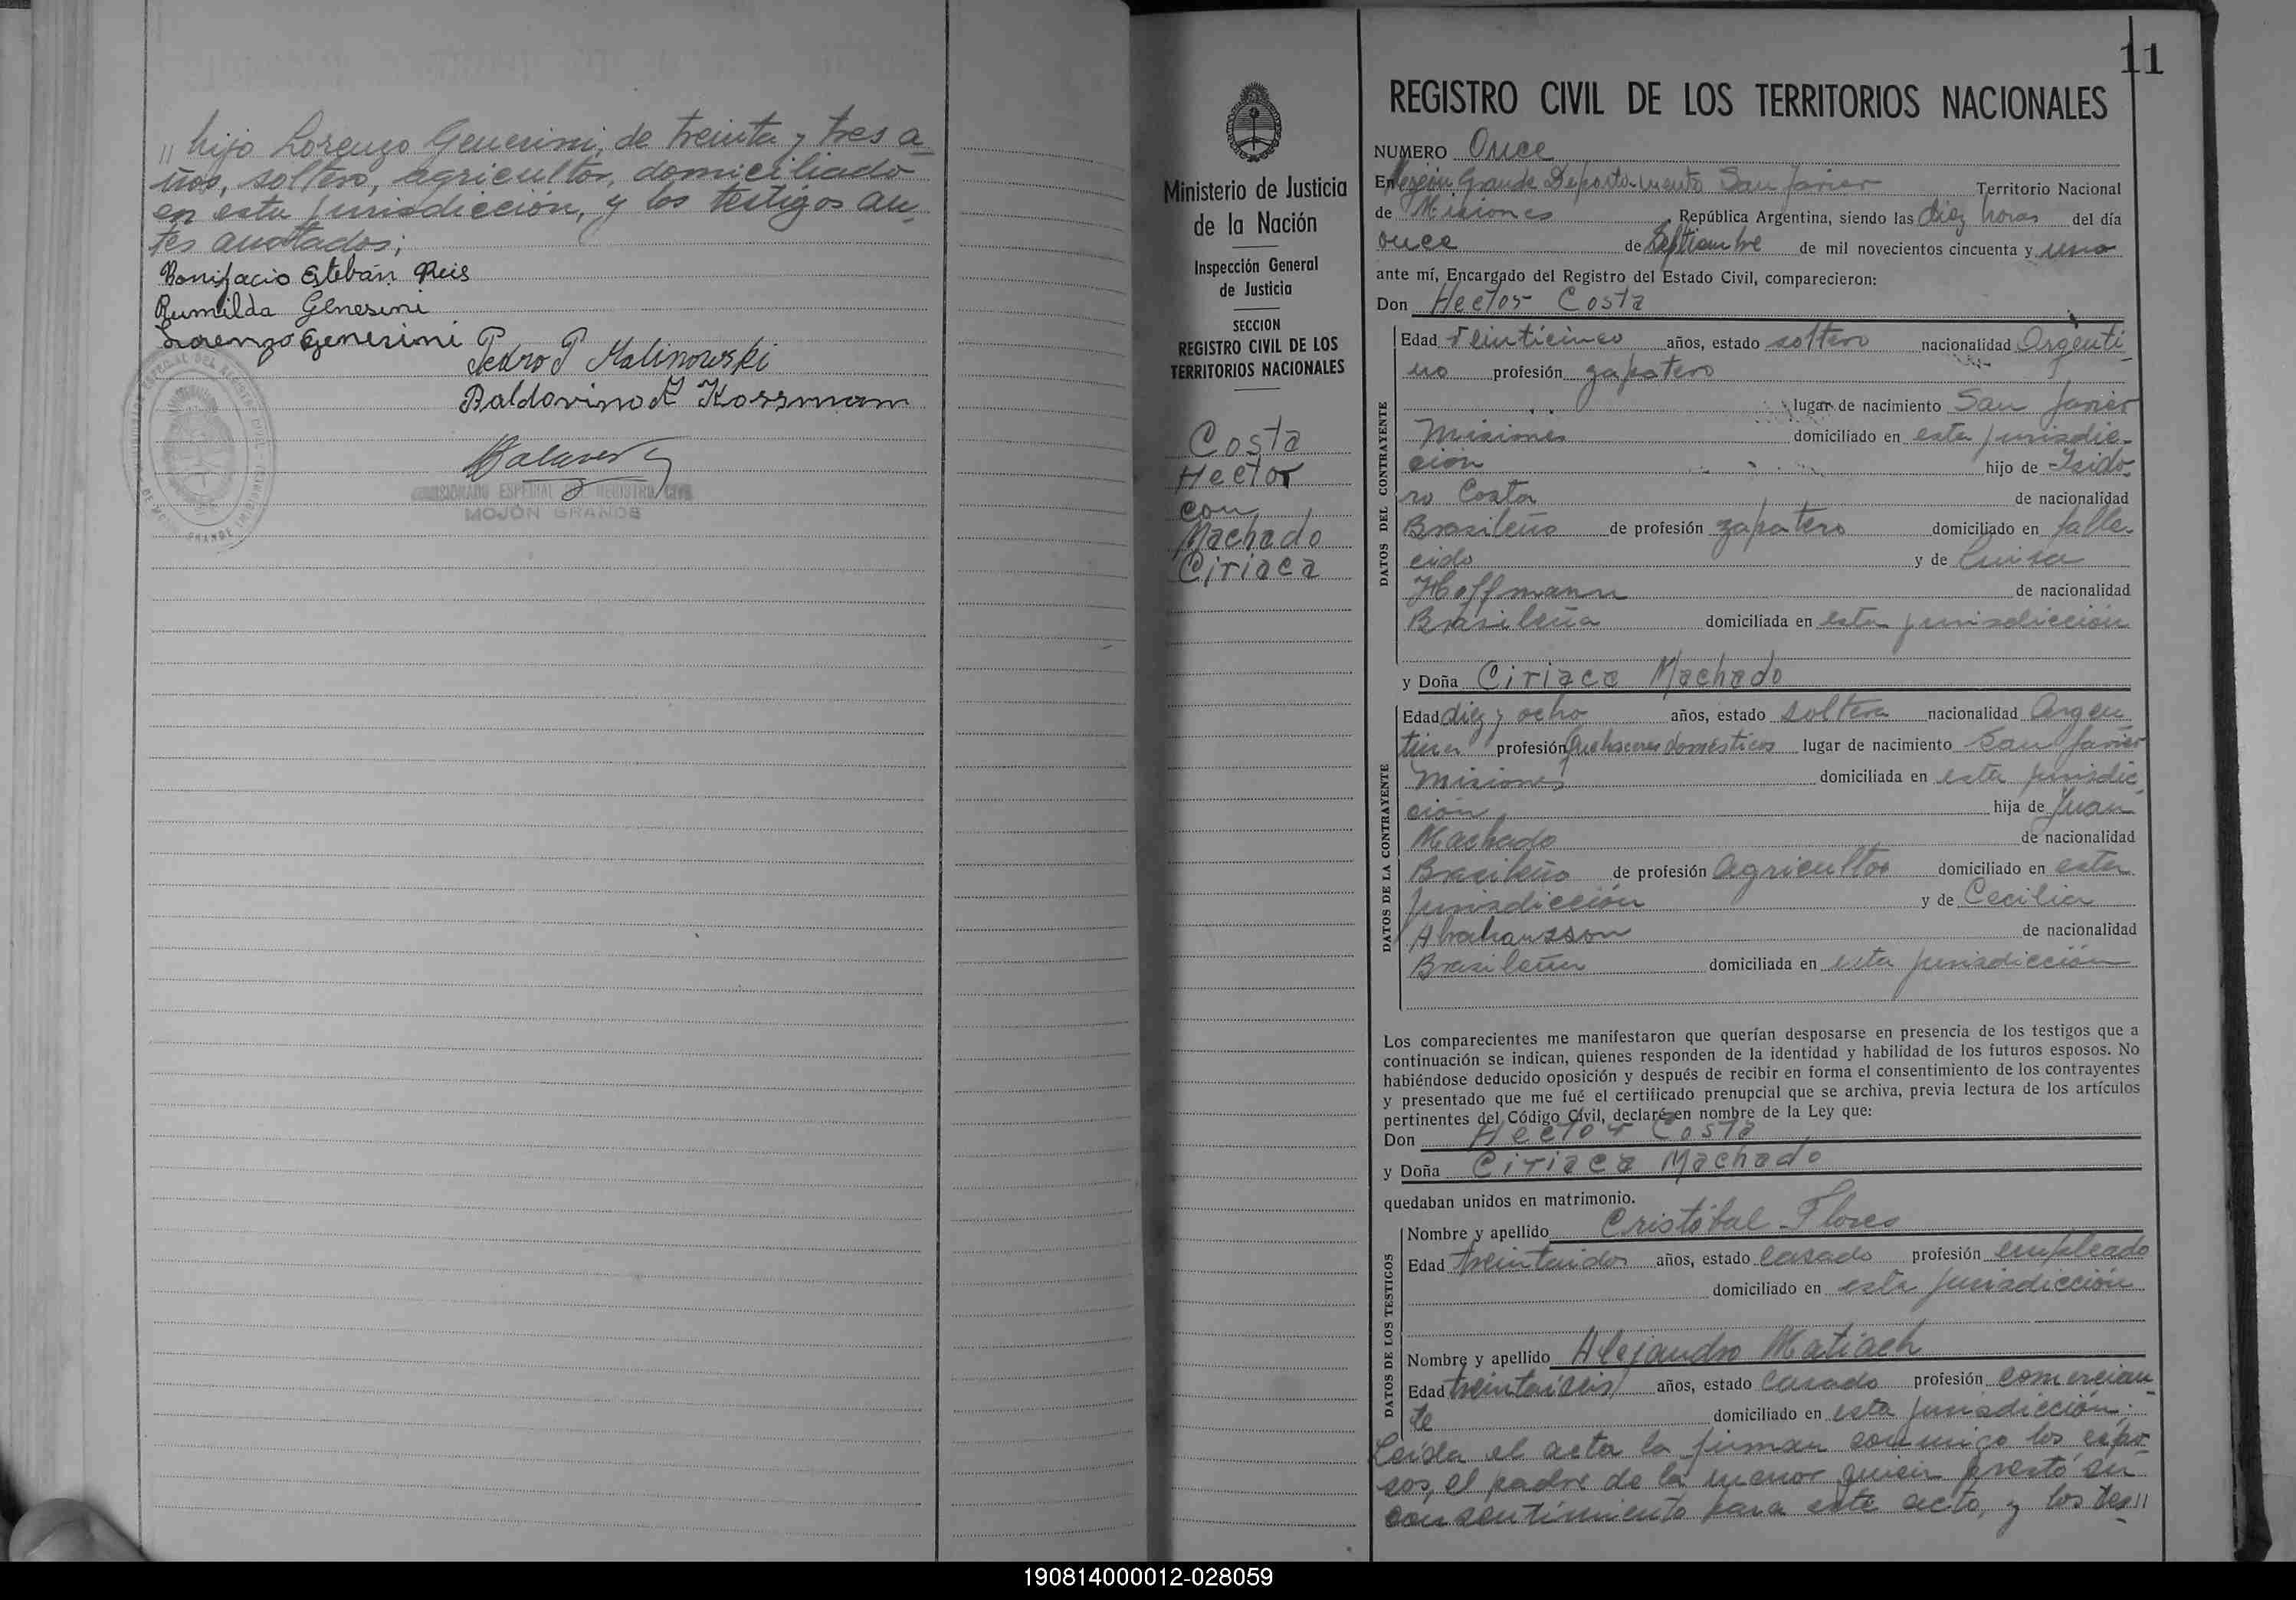 " hijo Lorenzo Genesini, de treinta y tres a-
ños, soltero, agricultor, domiciliado
en esta jurisdicción, y los testigos an-
tes anotados;
Bonifacio Esteban Reis
Rumilda Genesini
Lorenzo Genesini
Pedro P Malinowski
Baldovino Kossmann
COMISIONADO ESPECIAL DEL REGISTRO CIVIL
MOJÓN GRANDE
Ministerio de Justicia
de la Nación
Inspección General
de Justicia
SECCION
REGISTRO CIVIL DE LOS
TERRITORIOS NACIONALES
Costa
Hector
con
Machado
Ciriaca
11
REGISTRO CIVIL DE LOS TERRITORIOS NACIONALES
NUMERO Once
En Mojón Grande Departamento San Javier Territorio Nacional
de Misiones, República Argentina, siendo las diez horas del día
once de Septiembre de mil novecientos cincuenta y uno
ante mí, Encargado del Registro del Estado Civil, comparecieron:
Don Hector Costa
DATOS DEL CONTRAYENTE
Edad Veinticinco años, estado soltero nacionalidad Argenti-
no profesión zapatero
lugar de nacimiento San Javier
Misiones domiciliado en esta jurisdic-
ción hijo de Isido-
ro Costa de nacionalidad
Brasileño de profesión zapatero domiciliado en falle-
cido y de Luisa
Hoffmann de nacionalidad
Brasileña domiciliada en esta jurisdicción
y Doña Ciriaca Machado
DATOS DE LA CONTRAYENTE
Edad diez y ocho años, estado soltera nacionalidad Argen-
tina profesión Quehaceres domésticos lugar de nacimiento San Javier
Misiones domiciliada en esta jurisdic-
ción hija de Juan
Machado de nacionalidad
Brasileño de profesión Agricultor domiciliado en esta
jurisdicción y de Cecilia
Abrahansson de nacionalidad
Brasileña domiciliada en esta jurisdicción
Los comparecientes me manifestaron que querían desposarse en presencia de los testigos que a
continuación se indican, quienes responden de la identidad y habilidad de los futuros esposos. No
habiéndose deducido oposición y después de recibir en forma el consentimiento de los contrayentes
y presentado que me fué el certificado prenupcial que se archiva, previa lectura de los artículos
pertinentes del Código Civil, declaré en nombre de la Ley que:
Don Hector Costa
y Doña Ciriaca Machado
quedaban unidos en matrimonio.
DATOS DE LOS TESTIGOS
Nombre y apellido Cristóbal Flores
Edad treintaidos años, estado casado profesión empleado
domiciliado en esta jurisdicción
Nombre y apellido Alejandro Matiach
Edad treintaiseis años, estado casado profesión comercian-
te domiciliado en esta jurisdicción.
Leida el acta la firman conmigo los espo-
sos, el padre de la menor quien prestó su
consentimiento para este acto, y los tes"
190814000012-028059